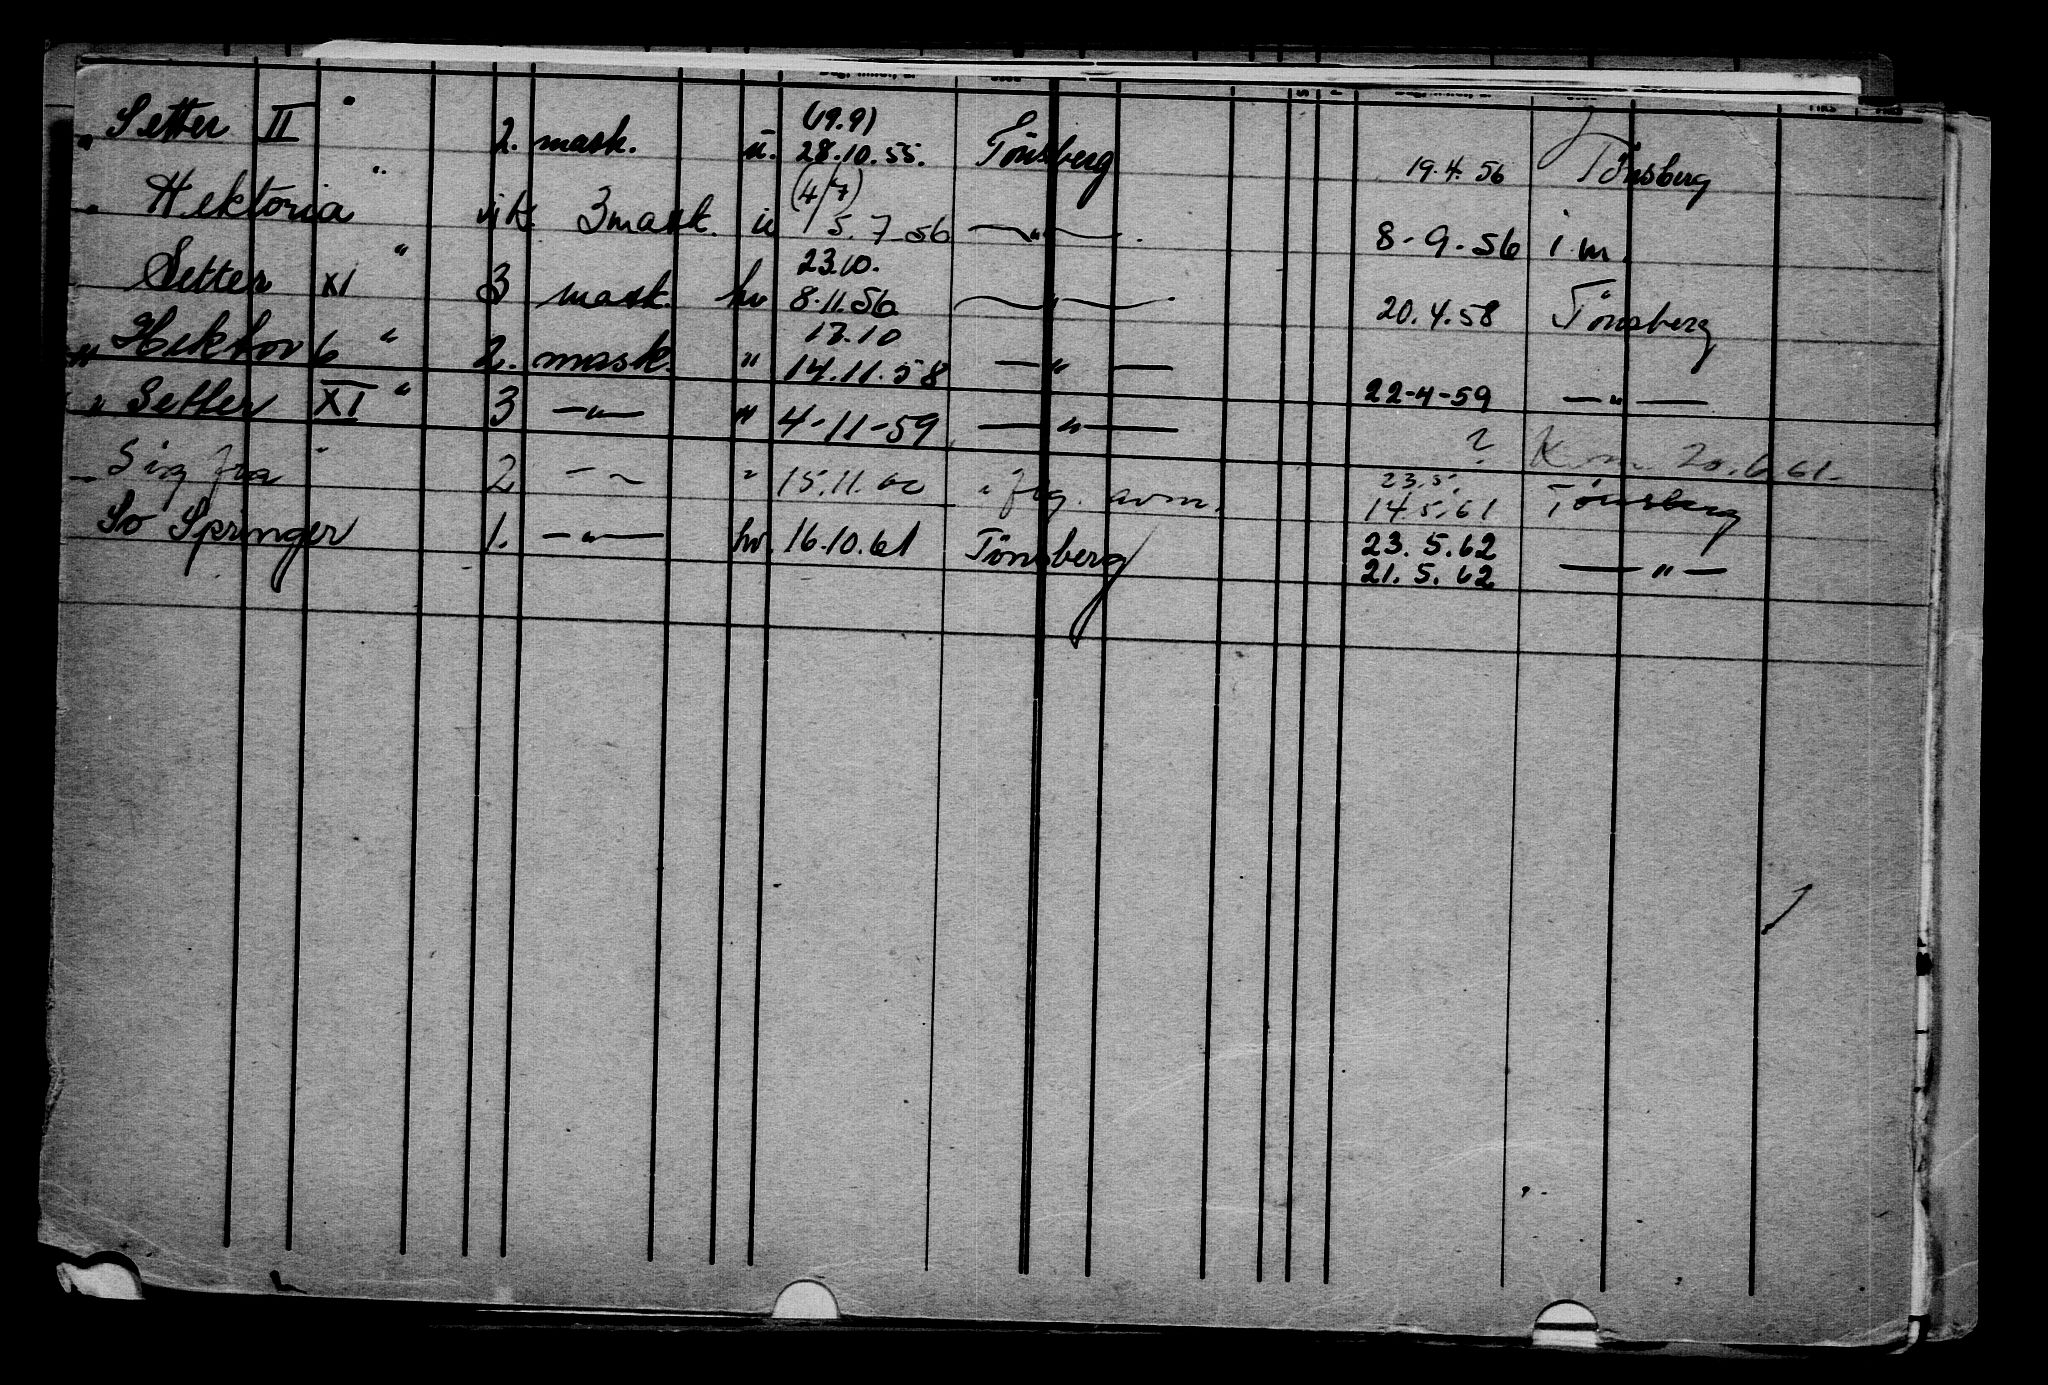 " Setter II " 2. mask. u. (19.9) 28.10.55. Tönsberg 19.4.56 Tönsberg
" Hektoria " vik 3 mask. u (4/7) 5.7-56 — " — . 8-9-56 i.m.
Setter XI " 3 mask. hv 23.10. 8.11.56 — " — 20.4.58 Tönsberg
" Hektor 6 " 2. mask. " 17.10 14.11.58 — " — 22-4-59 — " —
" Setter XI " 3 — " — " 4-11-59 — " — ? K.m. 20.6.61.
Sig fra " 2 — " 15.11.60 i flg. avm. 23.5. 14.5.61 Tönsberg
So Springer 1. — " — hv. 16.10.61 Tönsberg 23.5.62 21.5.62 — " —